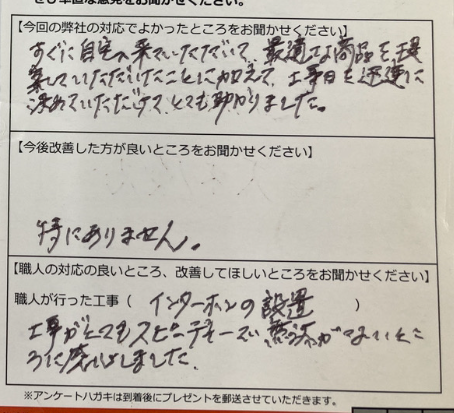 せび率直な意見をお聞かせください。
【今回の弊社の対応でよかったところをお聞かせください】
すぐに自宅へ来ていただいて、最適な商品を提
案していただけたことに加えて、工事日を迅速に
決めていただけて、とても助かりました。
【今後改善した方が良いところをお聞かせください】
特にありません。
【職人の対応の良いところ、改善してほしいところをお聞かせください】
職人が行った工事（ インターホンの設置 ）
工事がとてもスピーディーで、
ろに感心しました。
※アンケートハガキは到着後にプレゼントを郵送させていただきます。